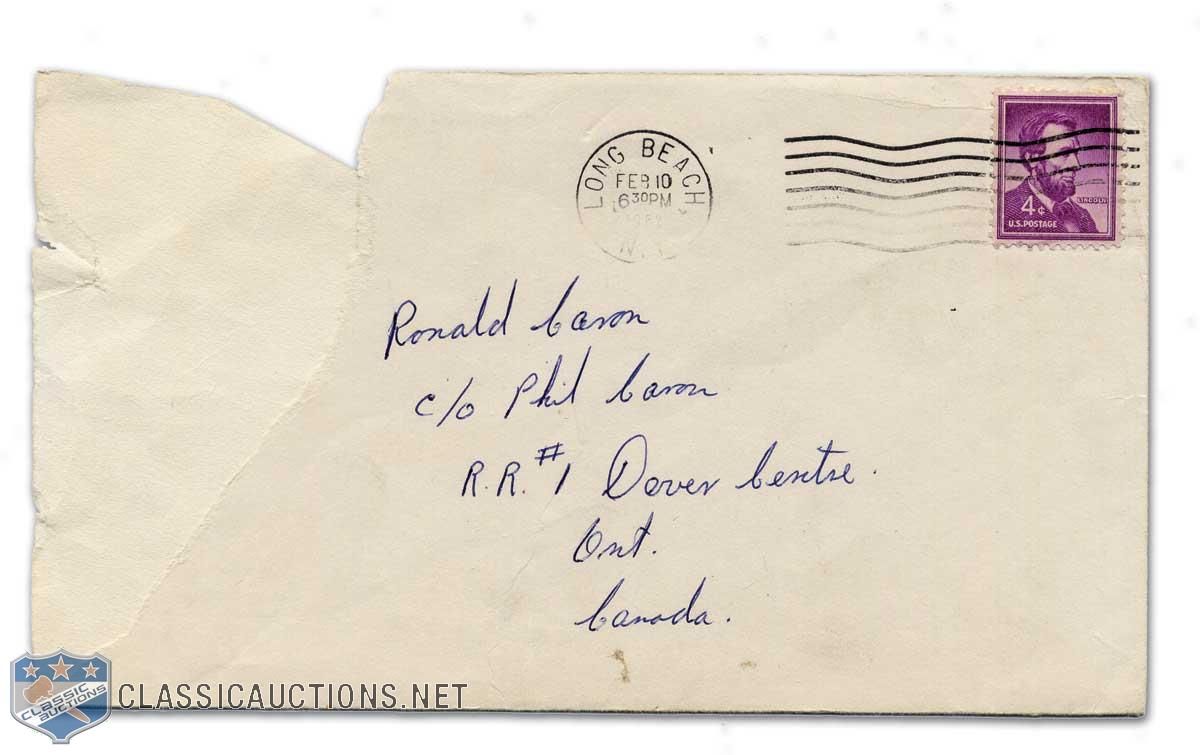 LONG BEACH
FEB 10
6 30 PM
N.Y.
LINCOLN
4¢
U.S. POSTAGE
Ronald Caron
c/o Phil Caron
R.R. #1 Dover Centre.
Ont.
Canada.
CLASSIC
AUCTIONS
CLASSICAUCTIONS.NET